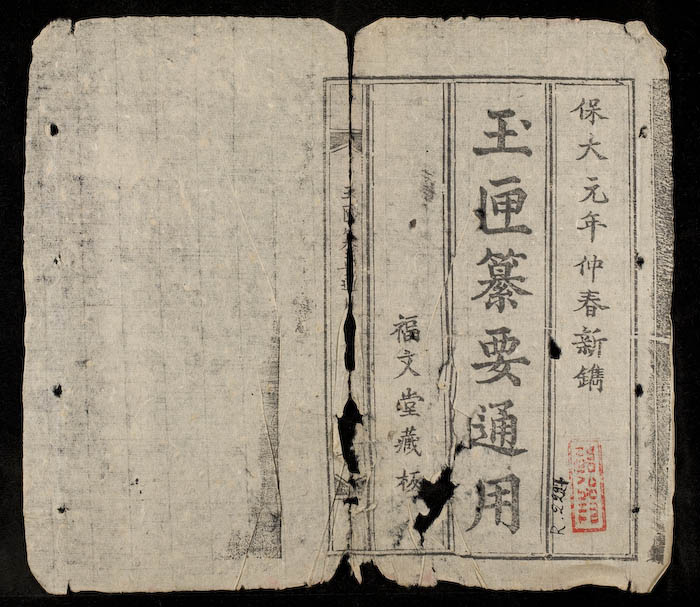 保大元年仲春新鐫
玉匣纂要通用
福文堂藏板